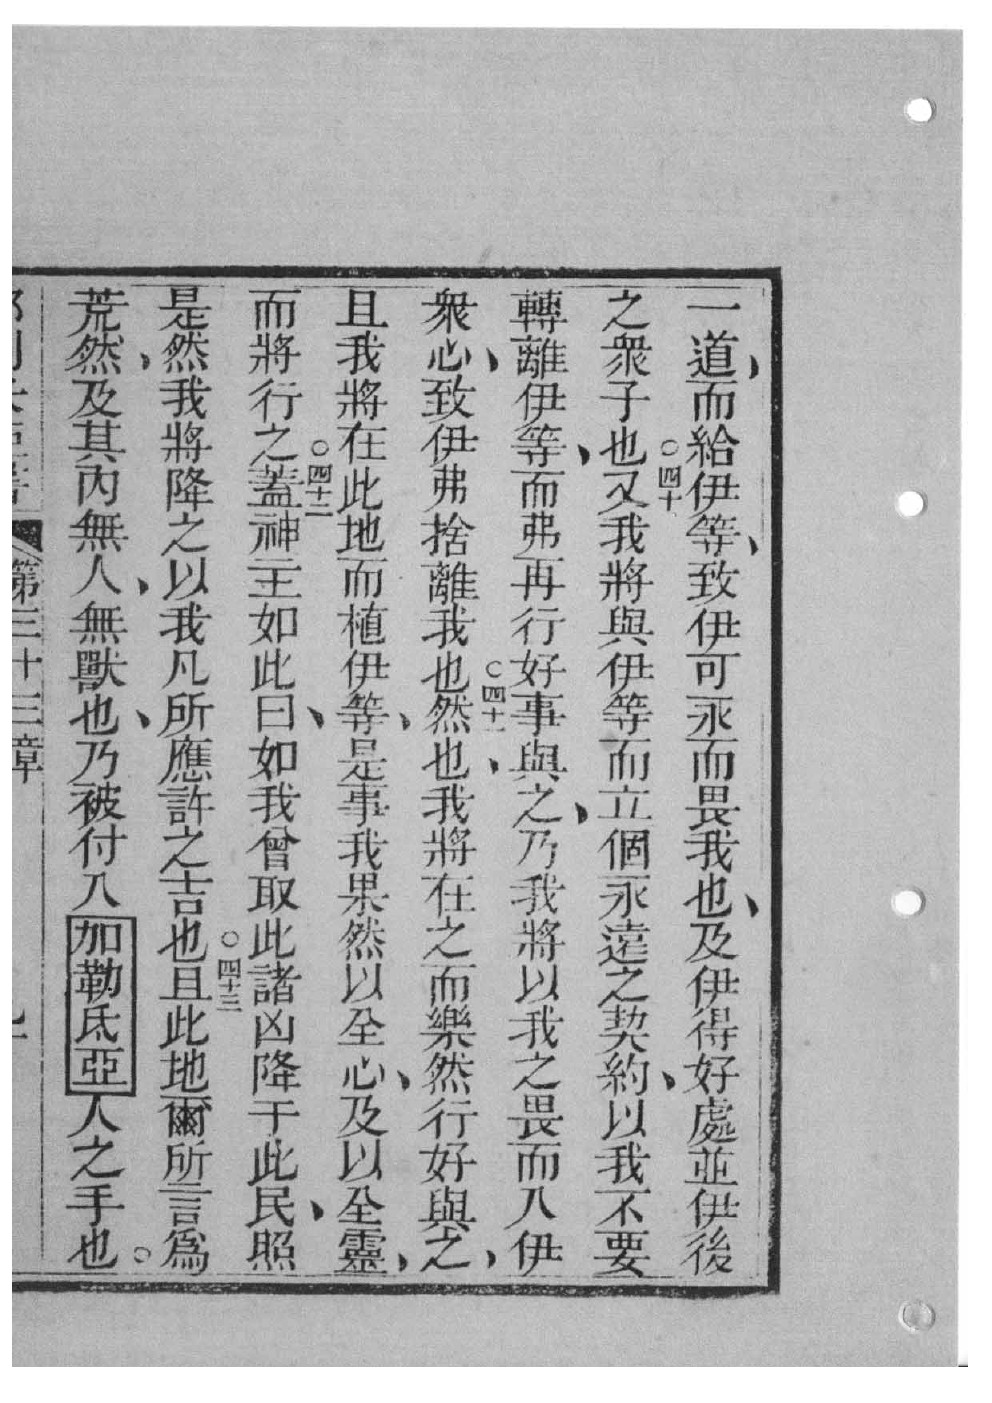 一道、而給伊等、致伊可永而畏我也、及伊得好處並伊後
之衆子也○四十又我將與伊等而立個永遠之契約、以我不要
轉離伊等、而弗再行好事與之、乃我將以我之畏而入伊
衆心、致伊弗捨離我也○四十一然也、我將在之而樂然行好與之、
且我將在此地而植伊等、是事我果然以全心、及以全靈、
而將行之○四十二蓋神主如此曰、如我曾取此諸凶降于此民、照
是然我將降之以我凡所應許之吉也○四十三且此地爾所言爲
荒然、及其內無人、無獸也、乃被付入加勒氐亞人之手也。
第三十三章